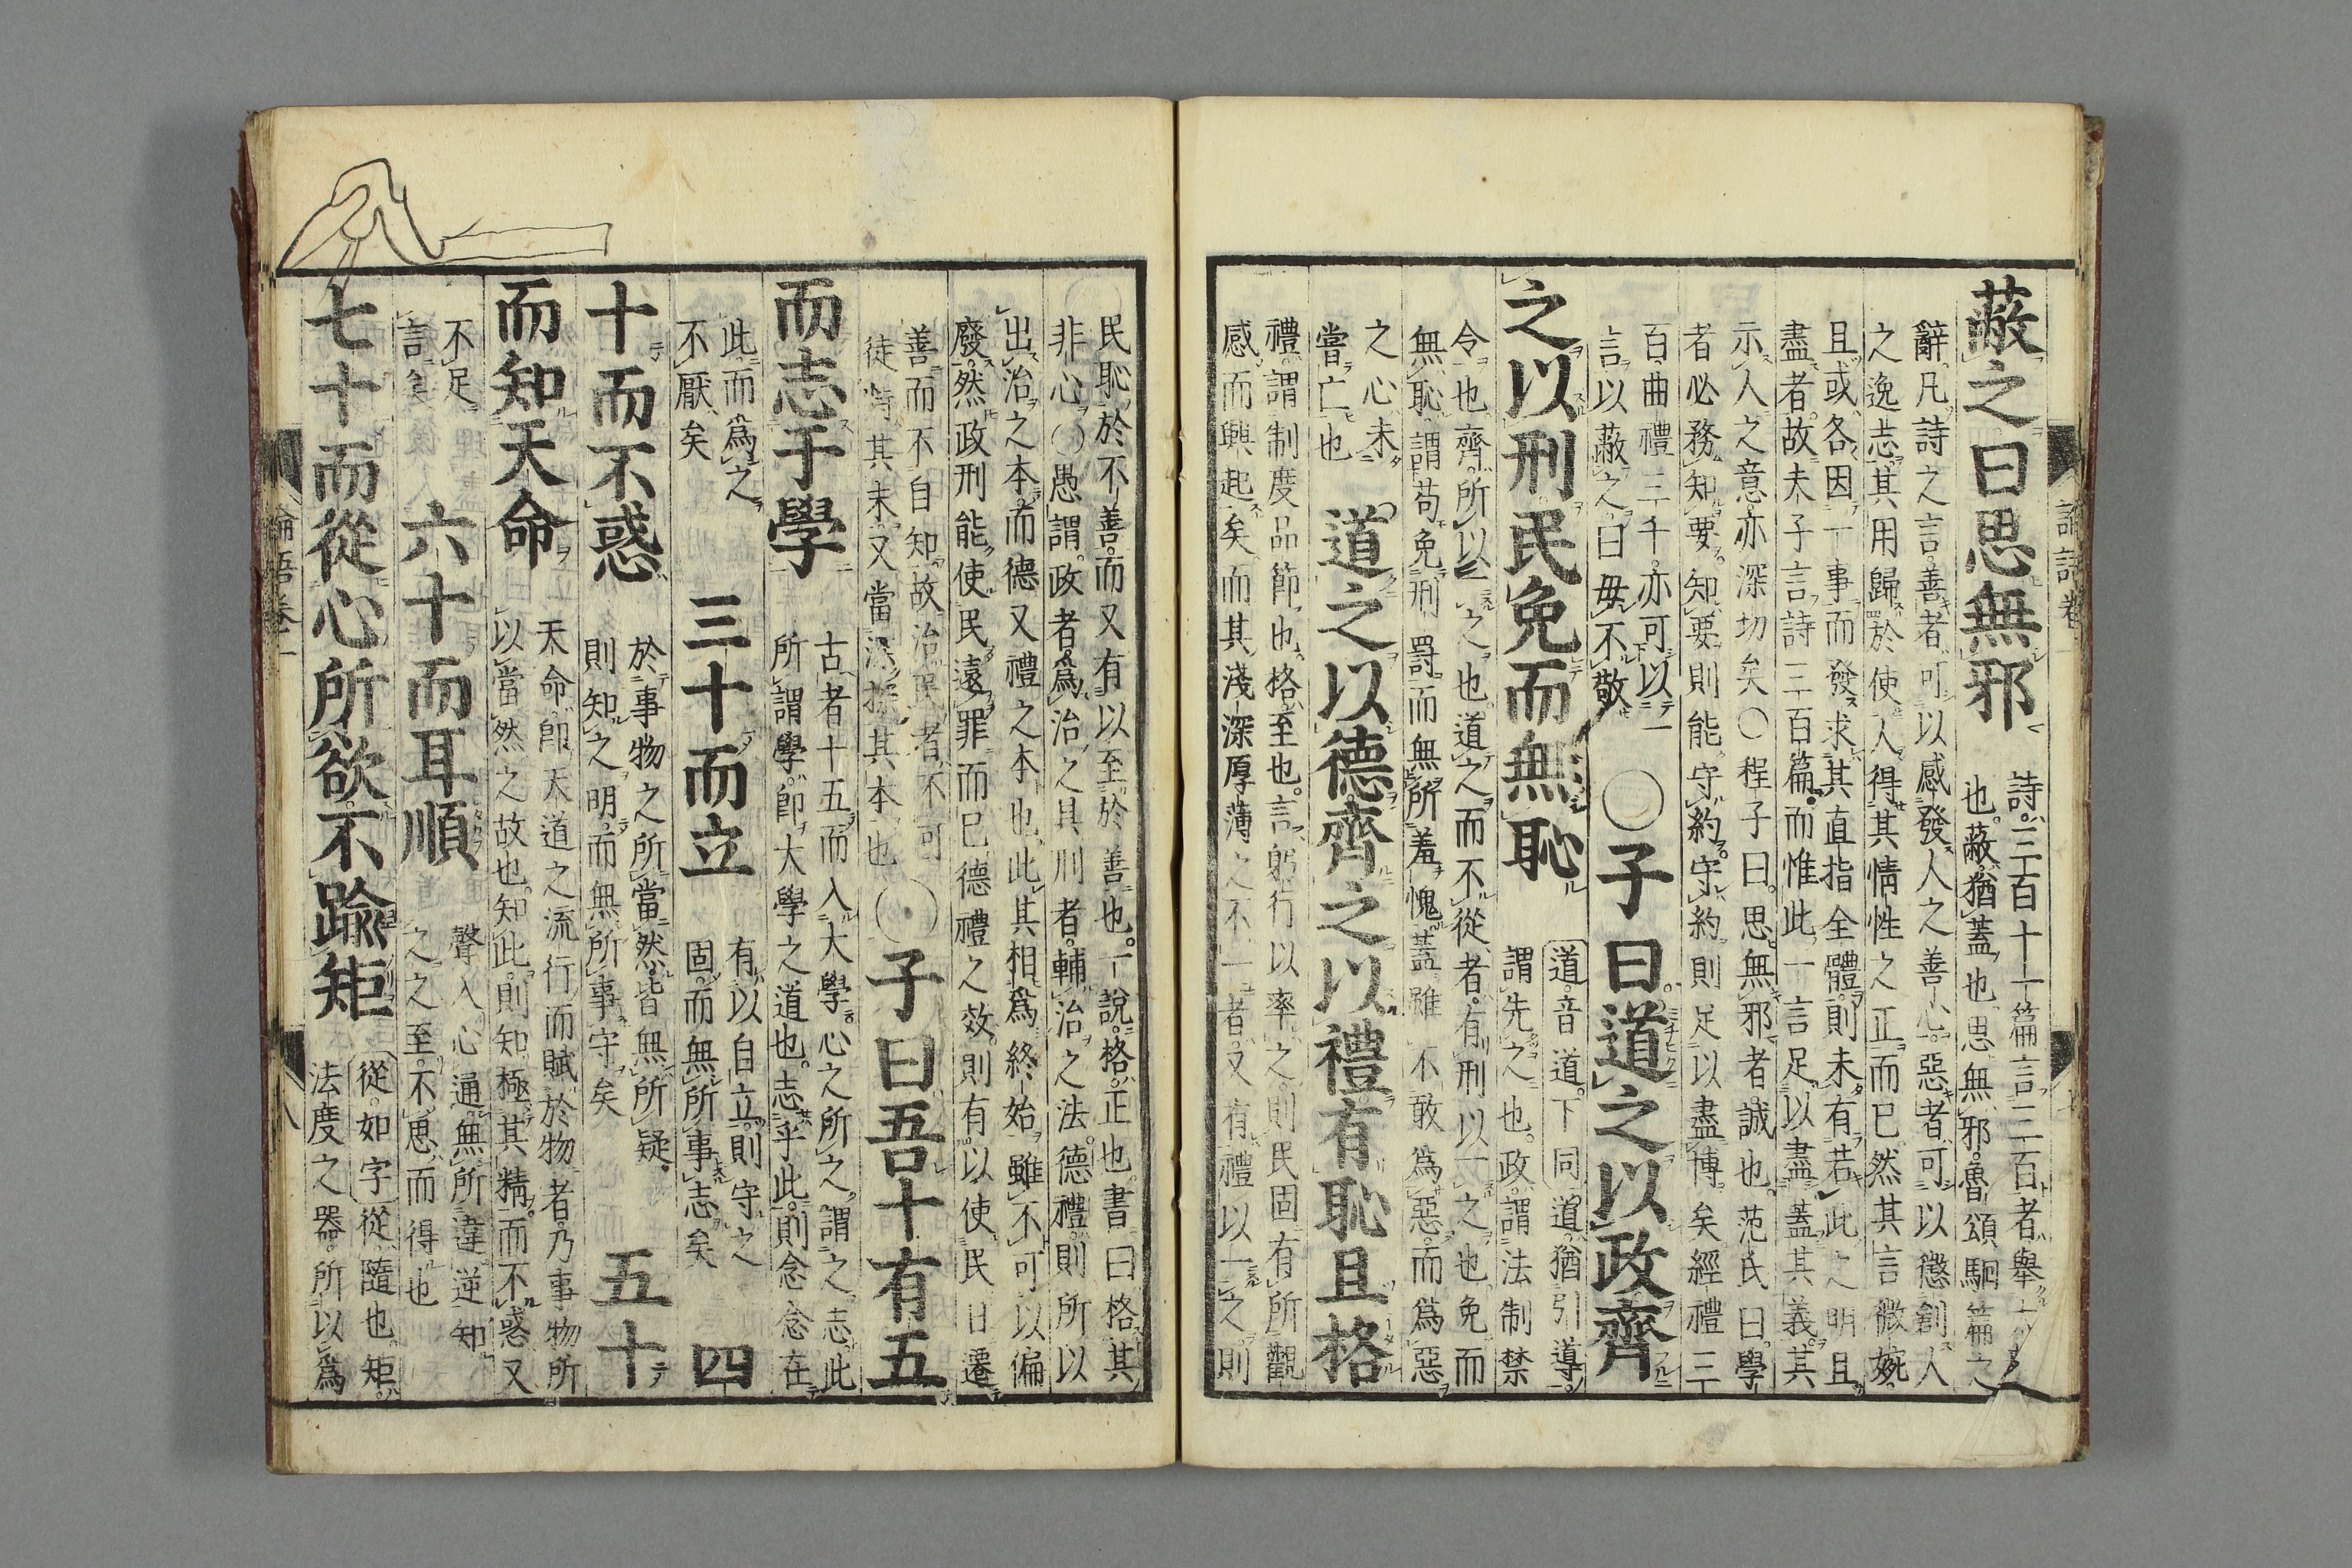 論語卷一
蔽之曰思無邪
詩三百十一篇言三百者舉大
也蔽猶蓋也思無邪魯頌駉篇之
辭凡詩之言善者可以感發人之善心惡者可以懲創人
之逸志其用歸於使人得其情性之正而已然其言微婉
且或各因一事而發求其直指全體則未有若此之明且
盡者故夫子言詩三百篇而惟此一言足以盡蓋其義其
示人之意亦深切矣〇程子曰思無邪者誠也范氏曰學
者必務知要知要則能守約守約則足以盡博矣經禮三
百曲禮三千亦可以一
言以蔽之曰毋不敬
〇子曰道之以政齊
道音道下同道猶引導
謂先之也政謂法制禁
之以刑民免而無恥
令也齊所以一之也道之而不從者有刑以一之也免而
無恥謂苟免刑罰而無所羞愧蓋雖不敢爲惡而爲惡
之心未
嘗亡也
道之以德齊之以禮有恥且格
禮謂制度品節也格至也言躬行以率之則民固有所觀
感而興起矣而其淺深厚薄之不一者又有禮以一之則
民恥於不善而又有以至於善也一說格正也書曰格其
非心〇愚謂政者爲治之具刑者輔治之法德禮則所以
出治之本而德又禮之本也此其相爲終始雖不可以偏
廢然政刑能使民遠罪而已德禮之效則有以使民日遷
善而不自知故治民者不可
徒恃其末又當深探其本也
〇子曰吾十有五
而志于學
古者十五而入大學心之所之謂之志此
所謂學卽大學之道也志乎此則念念在
此而爲之
不厭矣
三十而立
有以自立則守之
固而無所事志矣
四
十而不惑
於事物之所當然皆無所疑
則知之明而無所事守矣
五十
而知天命
天命卽天道之流行而賦於物者乃事物所
以當然之故也知此則知極其精而不惑又
不足
言矣
六十而耳順
聲入心通無所違逆知
之之至不思而得也
七十而從心所欲不踰矩
從如字從隨也矩
法度之器所以爲
論語卷一
八